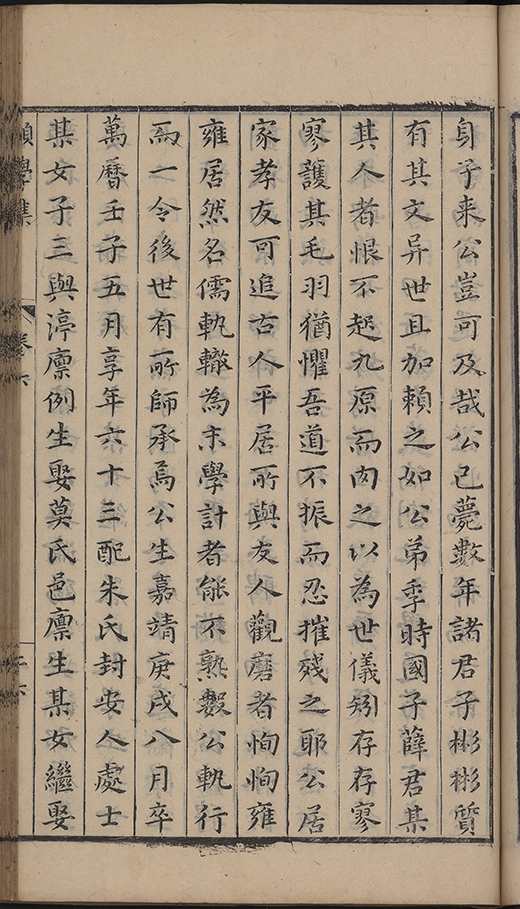 身子来公豈可及哉公已薨數年諸君子彬彬質
有其文异世且加賴之如公弟季時國子薛君某
其人者恨不起九原而肉之以為世儀矧存存寥
寥護其毛羽猶懼吾道不振而忍摧殘之耶公居
家孝友可追古人平居所與友人觀磨者恂恂雍
雍居然名儒軌轍為末學計者能不熟數公軌行
而一令後世有所師承焉公生嘉靖庚戌八月卒
萬曆壬子五月享年六十三配朱氏封安人處士
某女子三與渟廩例生娶莫氏邑廩生某女繼娶
學集
卷六